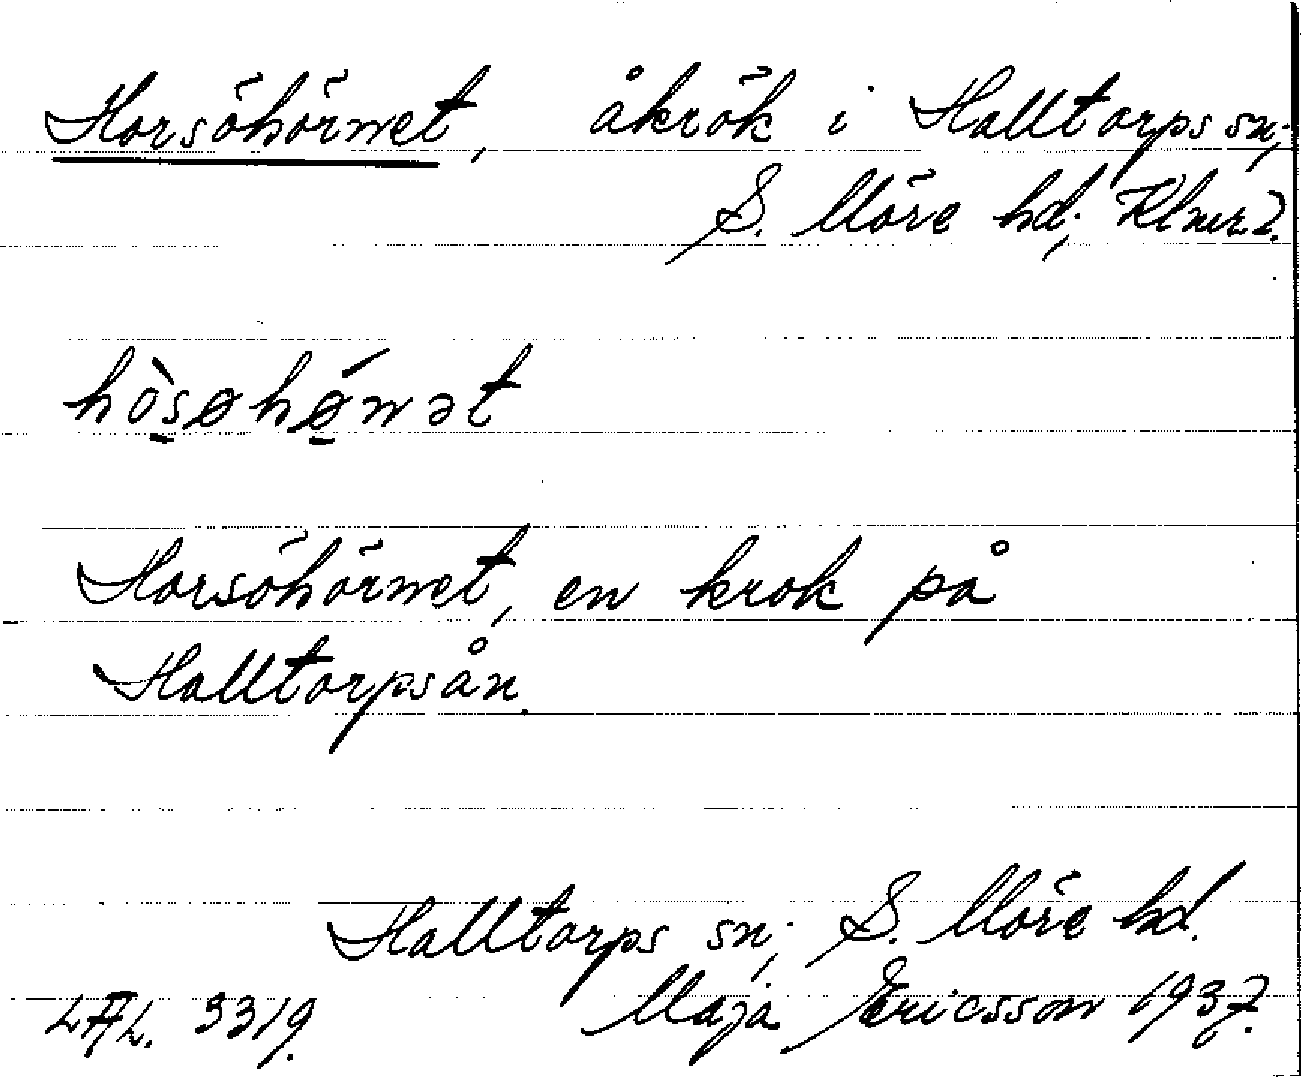 Horsöhörnet, åkrök i Halltorps sn,
S. Möre hd, Klmr l.
hòsøhǿnət
Horsöhörnet, en krok på
Halltorpsån.
Halltorps sn, S. Möre hd.
LAL. 3319. Maja Ericsson 1937.